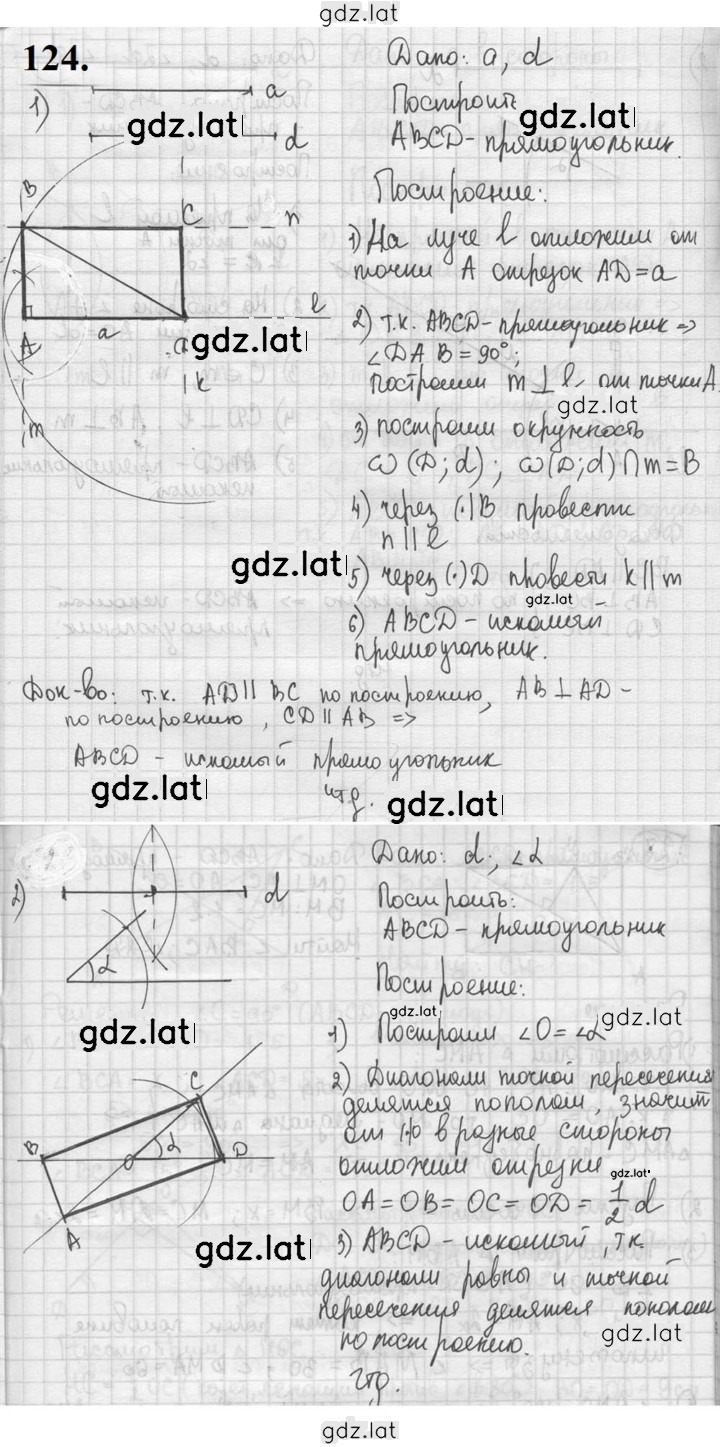 gdz.lat
124.
1)
a
d
gdz.lat
B
C
n
A
a
l
k
m
gdz.lat
Дано: a, d
Построить
gdz.lat
ABCD - прямоугольник.
Построение:
1) На луче l отложим от
точки A отрезок AD = a
2) т.к. ABCD - прямоугольник =>
∠DAB = 90°;
построим m ⊥ l от точки A
gdz.lat
3) построим окружность
ω (D; d) ; ω(D; d) ∩ m = B
4) через (·) B провести
n || l
gdz.lat
5) через (·) D провести k || m
gdz.lat
6) ABCD - искомый
прямоугольник.
Док-во: т.к. AD || BC по построению, AB ⊥ AD -
по построению, CD || AB =>
ABCD - искомый прямоугольник
gdz.lat
чтд.
gdz.lat
2)
d
α
gdz.lat
C
B
O
α
D
A
gdz.lat
Дано: d; ∠α
Построить:
ABCD - прямоугольник
Построение:
gdz.lat
gdz.lat
1) Построим ∠O = ∠α
2) Диагонали точкой пересечения
делятся пополам, значит
от (·) O в разные стороны
отложим отрезки
gdz.lat
OA = OB = OC = OD = 1/2 d
3) ABCD - искомый, т.к.
диагонали равны и точкой
пересечения делятся пополам
по построению.
gdz.lat
чтд.
gdz.lat